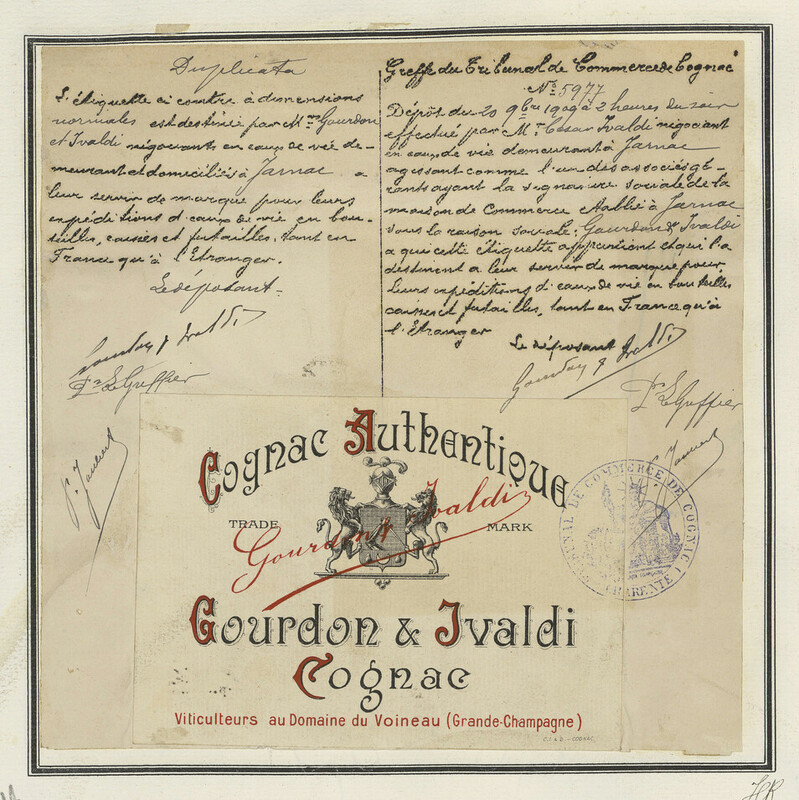 Duplicata
L'étiquette ci contre à dimensions
normales est destinée par Mrs Gourdon
et Ivaldi négociants en eaux de vie de-
meurant et domiciliés à Jarnac a
leur servir de marque pour leurs
expéditions d'eaux de vie en bou-
teilles, caisses et futailles, tant en
France qu'à l'Etranger.
Le déposant
Gourdon & Ivaldi
Pr Le Greffier
Greffe du Tribunal de Commerce de Cognac
No 5977
Dépôt du 20 9bre 1909 à 2 heures du soir
effectué par Mr César Ivaldi négociant
en eaux de vie demeurant à Jarnac
agissant comme l'un des associés gé-
rants ayant la signature sociale de la
maison de Commerce établie à Jarnac
sous la raison sociale: Gourdon & Ivaldi
a qui cette étiquette appartient et qui l'a
destinent a leur servir de marque pour
Leurs expéditions d'eaux de vie en bouteilles
caisses et futailles, tant en France qu'à
l'Etranger
Le déposant Gourdon & Ivaldi
Pr Le Greffier
Cognac Authentique
TRADE MARK
Gourdon & Ivaldi
Gourdon & Ivaldi
Cognac
Viticulteurs au Domaine du Voineau (Grande-Champagne)
TRIBUNAL DE COMMERCE DE COGNAC
CHARENTE